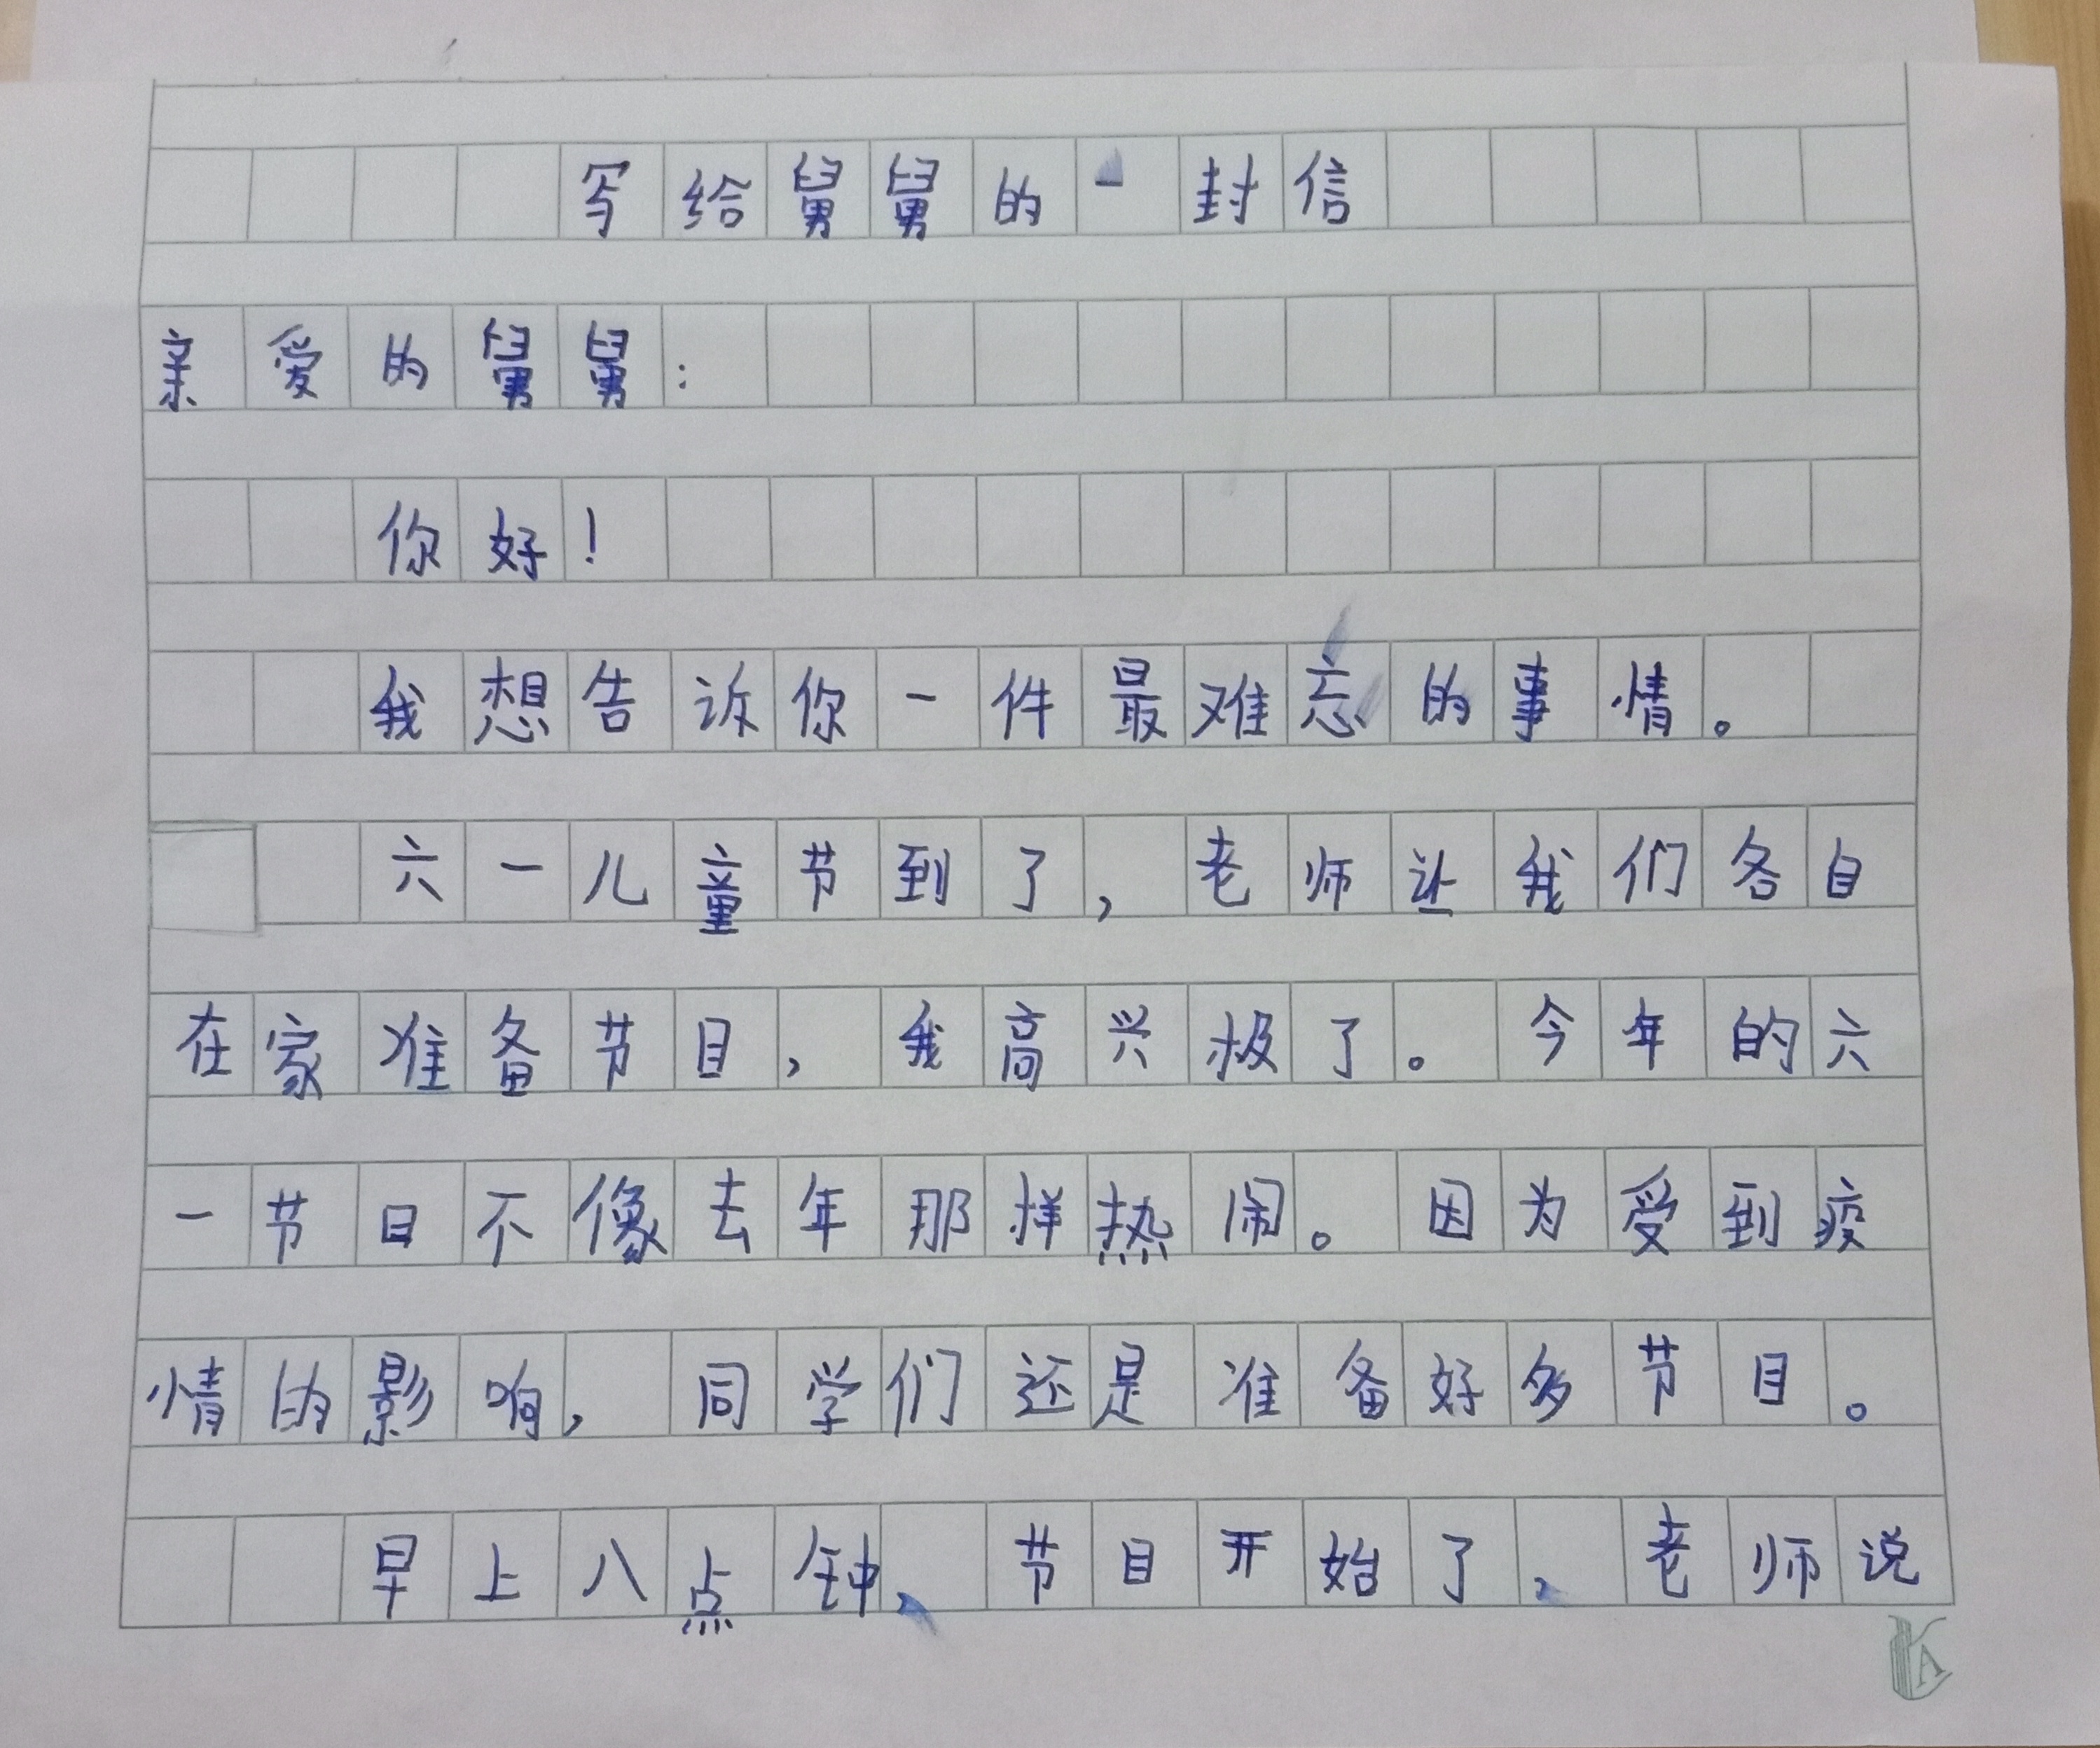 写给舅舅的一封信
亲爱的舅舅：
你好！
我想告诉你一件最难忘的事情。
六一儿童节到了，老师让我们各自
在家准备节目，我高兴极了。今年的六
一节日不像去年那样热闹。因为受到疫
情的影响，同学们还是准备好多节目。
早上八点钟、节目开始了、老师说
A